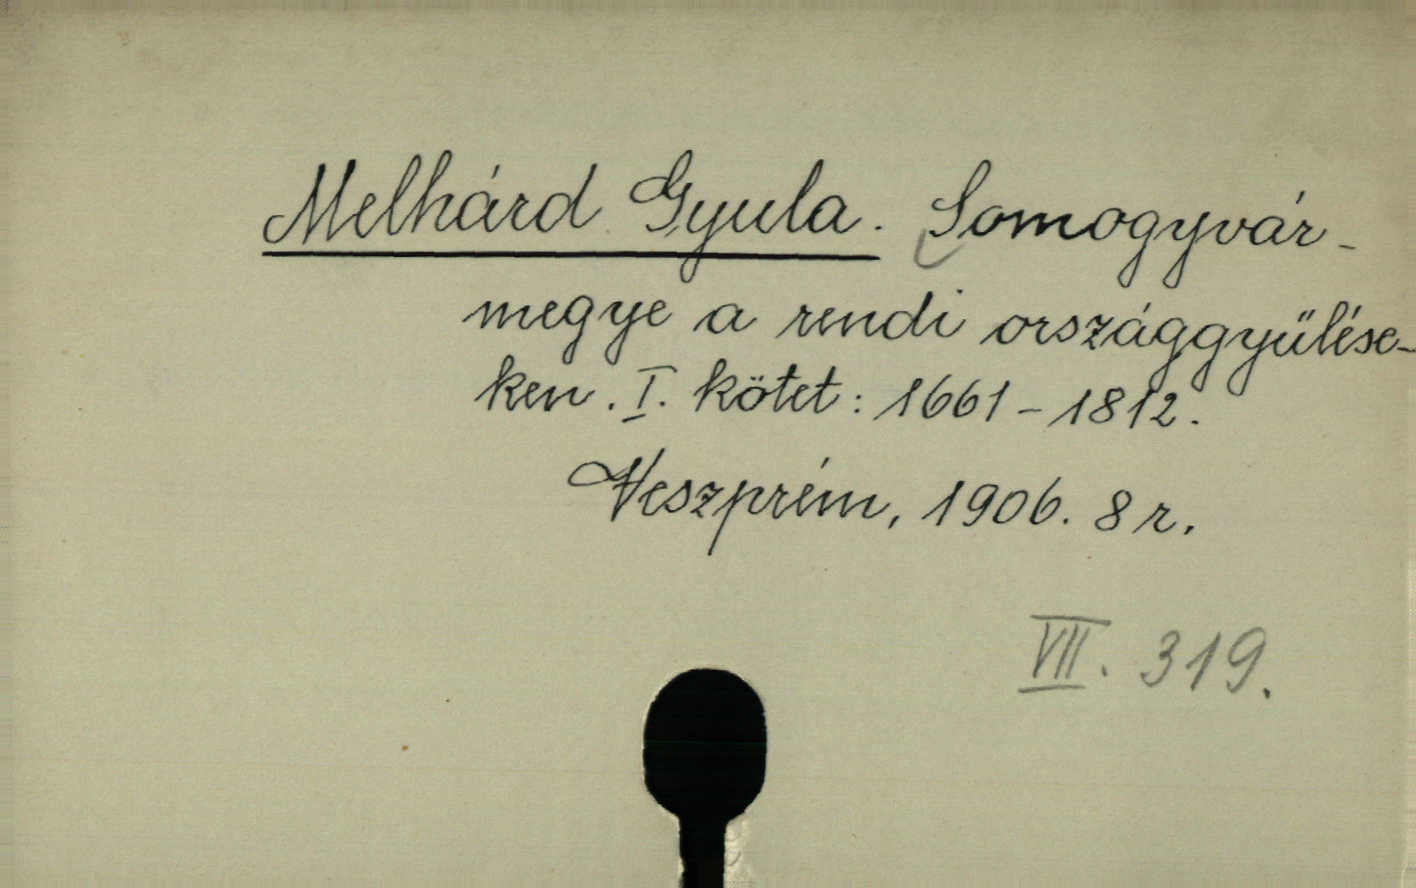 Melhárd Gyula. Somogyvár-
megye a rendi országgyűlése-
ken. I. kötet: 1661-1812.
Veszprém, 1906. 8 r.
VII. 319.